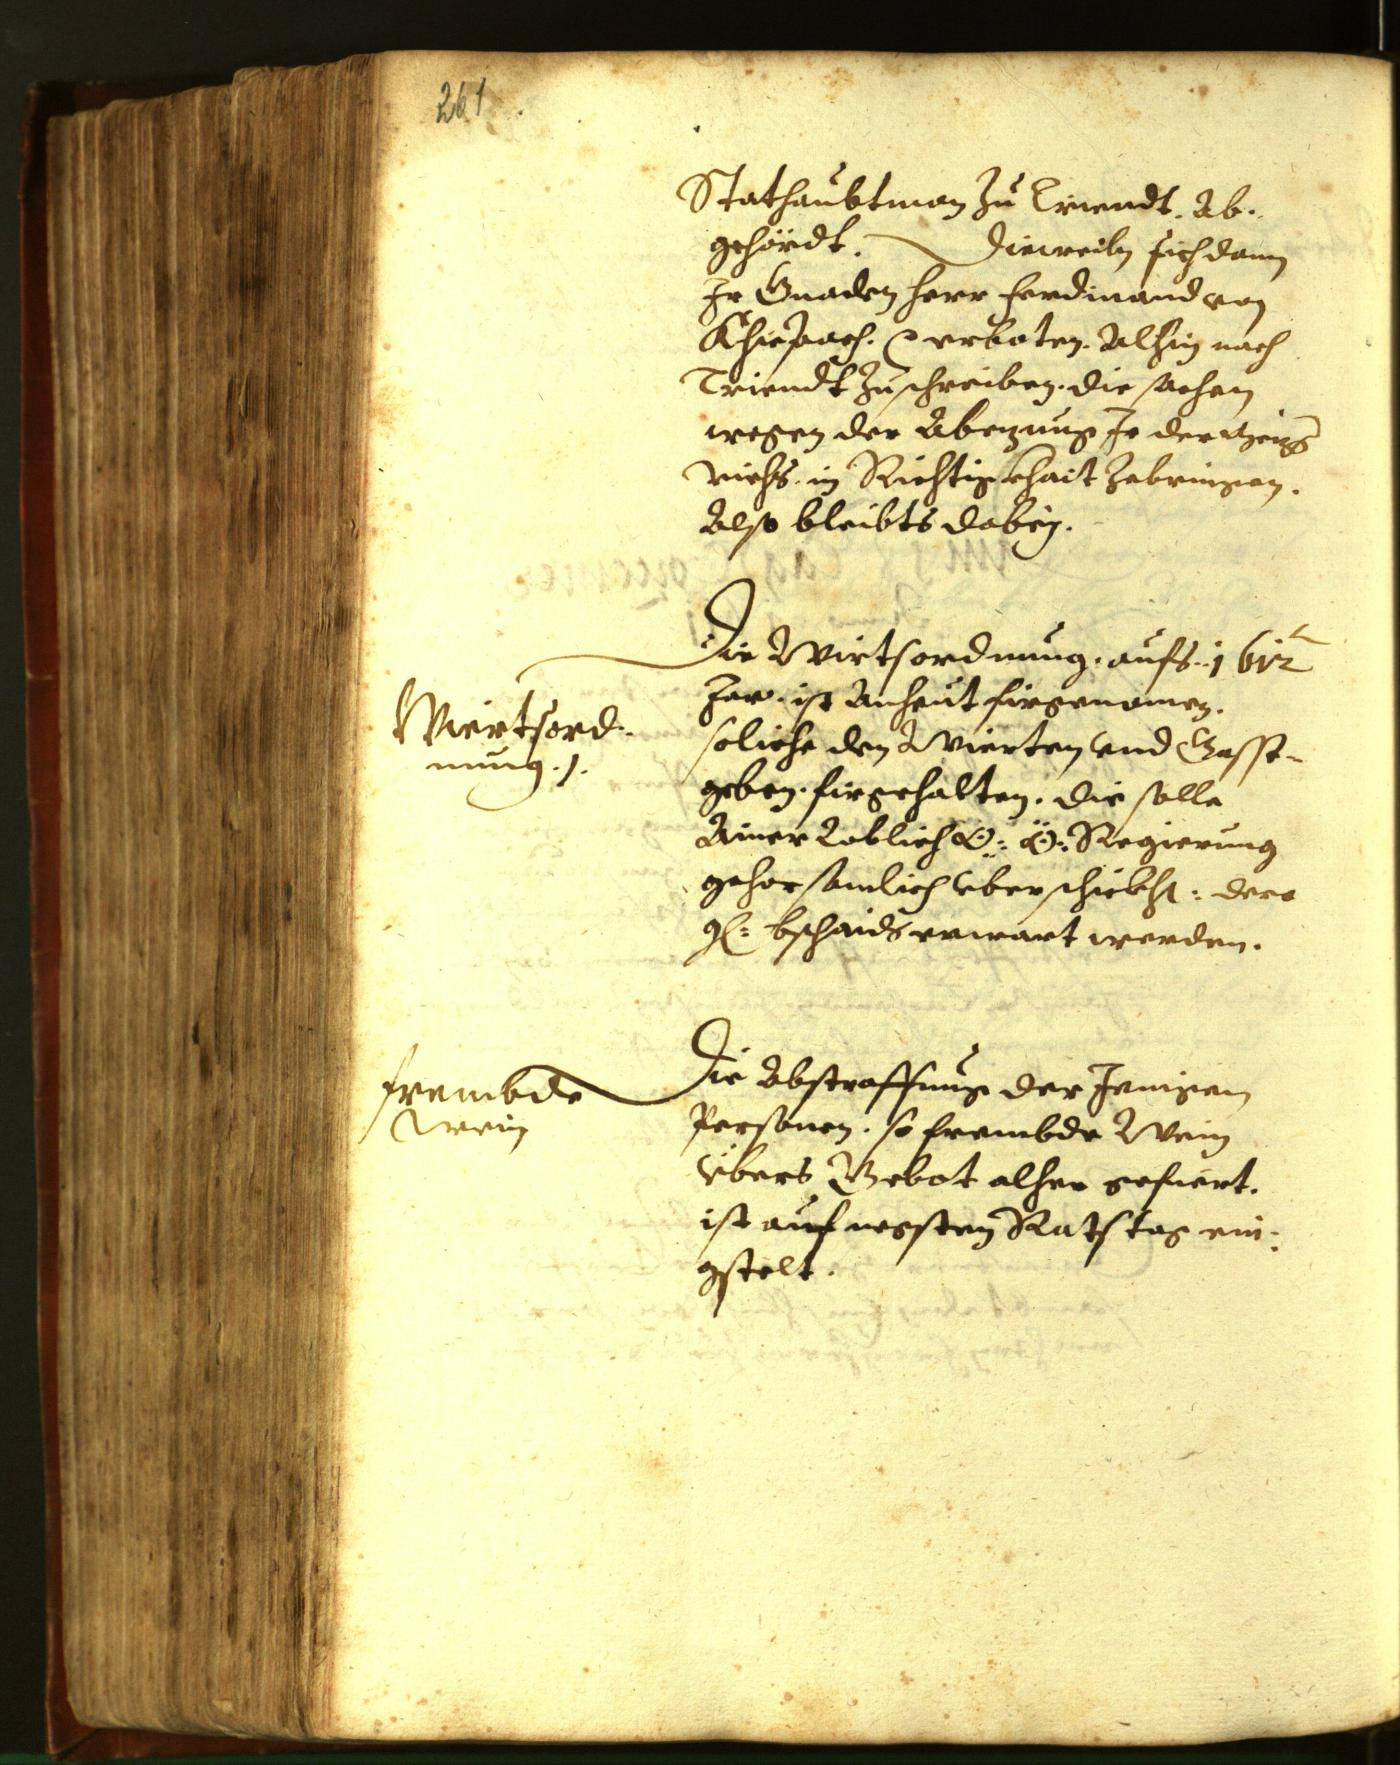 261
Stathaubtman zu Triendt. Ab-
gehördt. Dieweiln sich dann
Ir Gnaden Herr Ferdinand von
Khiepach. erboten. Alhin nach
Triendt zuschreiben. die sachen
wegen der Abezung Ir
viehs. in Richtigkhait zebringen.
Also bleibts dabeÿ.
Die Wirtsordnung. aufs. 1612
Jar. ist Anheut firgenomen.
soliche den Wierten vnd Gasst-
geben. firgehalten. die solle
Ainer Loblich O: Ö: Regierung
gehorsamlich vberschickht: dero
gl: bschaidts erwart werden.
Wiertsord-
nung. 1.
Die Abstraffung der Jenigen
Personen. so frembde Wein
vbers Verbot alher gefiert.
ist auf negsten Ratstag ein-
gstelt.
frembde
Wein